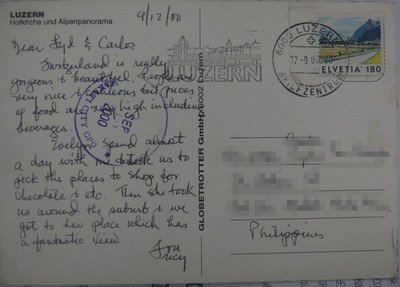 LUZERN
Hofkirche und Alpenpanorama
9/12/00
Dear & Carlos
Switzerland is really
gorgeous & beautiful. People are
very nice & courteous but prices
of food are very high including
beverages.
Evelyn spend almost
a day with us took us to
pick the places to shop for
chocolate & etc. Then she took
us around the suburb & we
got to her place which has
a fantastic view
Love
Lucy
LUZERN
6000 LUZERN
12-9.00
BRIEFZENTRUM
HELVETIA 180
SEP
2000
MAKATI CITY
GLOBETROTTER GmbH 6002 Luzern
Philippines